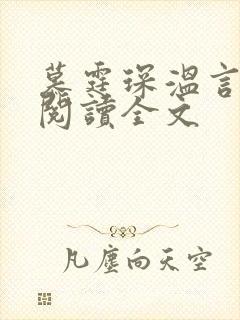 墓霆琛溫言
閱讀全文
凡塵向天空